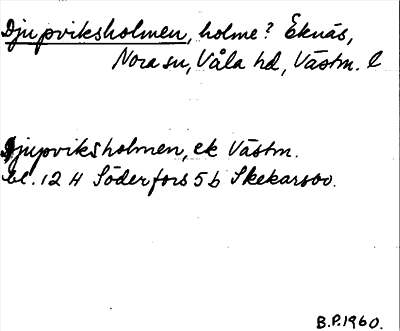 Djupviksholmen, holme? Eknäs,
Nora sn, Våla hd, Västm. l
Djupviksholmen, ek Västm.
bl. 12 H Söderfors 5 b Skekarsbo.
B.P. 1960.